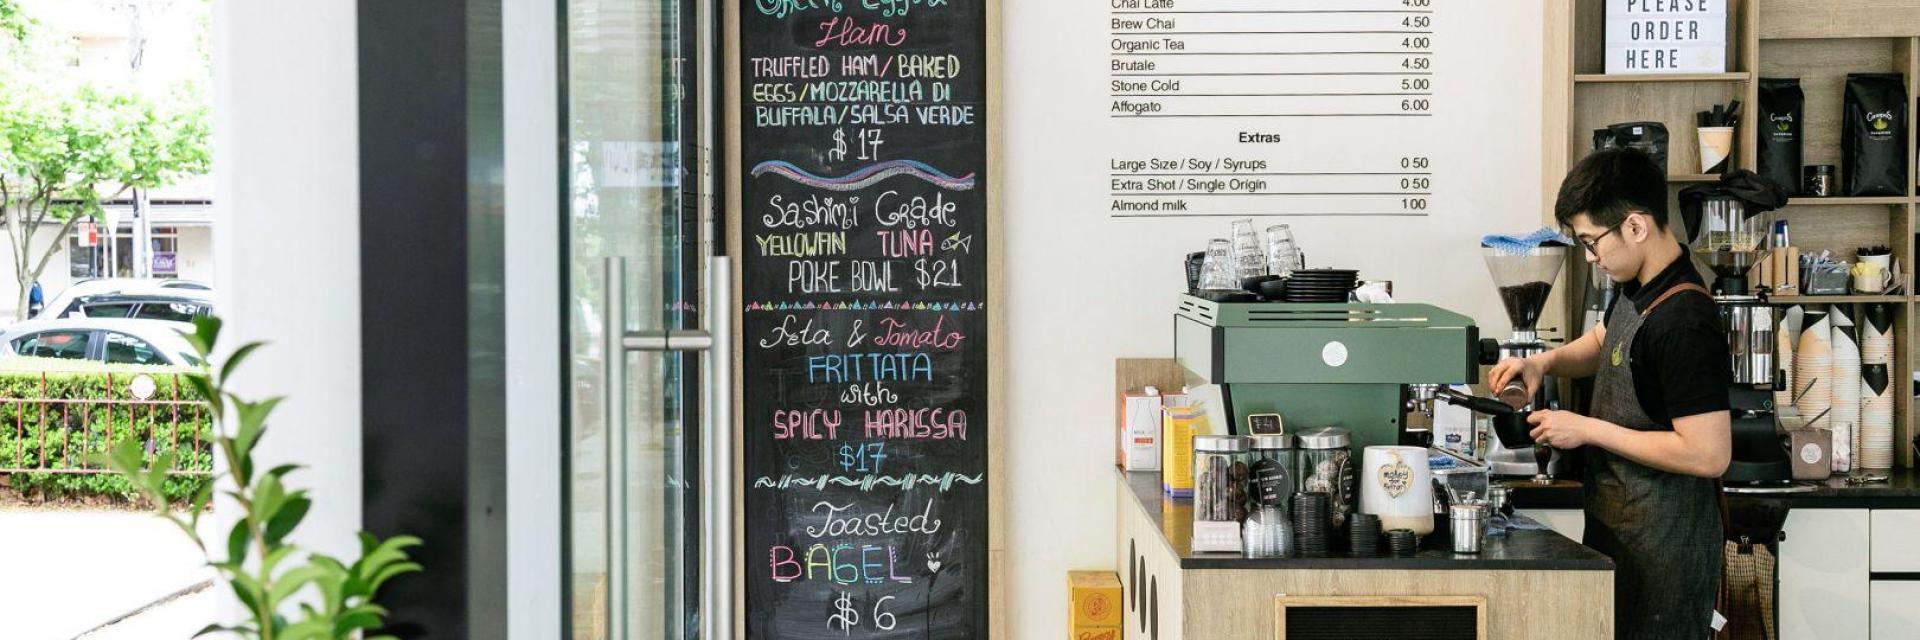 Green Eggs &
Ham
TRUFFLED HAM/BAKED
EGGS/MOZZARELLA DI
BUFFALA/SALSA VERDE
$17
Sashimi Grade
YELLOWFIN TUNA
POKE BOWL $21
feta & Tomato
FRITTATA
with
SPICY HARISSA
$17
Toasted
BAGEL
$6
Chai Latte 4.00
Brew Chai 4.50
Organic Tea 4.00
Brutale 4.50
Stone Cold 5.00
Affogato 6.00
Extras
Large Size / Soy / Syrups 0 50
Extra Shot / Single Origin 0 50
Almond milk 1 00
PLEASE
ORDER
HERE
Campos
Campos